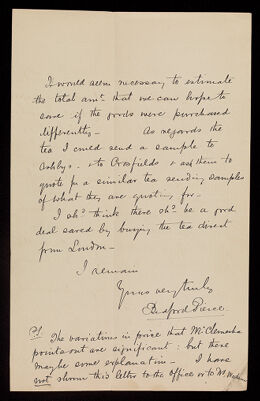 It would seem necessary to estimate
the total amt. that we can hope to
save if the goods were purchased
differently — As regards the
tea I could send a sample to
Ashbys & to Crosfields & ask them to
quote for a similar tea sending samples
of what they are quoting for —
I shd. think there shd. be a good
deal saved by buying the tea direct
from London —
I remain
Yours very truly
Bedford Pierce
PS The variations in price that Mr Clements
points out are significant: but there
may be some explanation — I have
not shown this letter to the office or to Mr